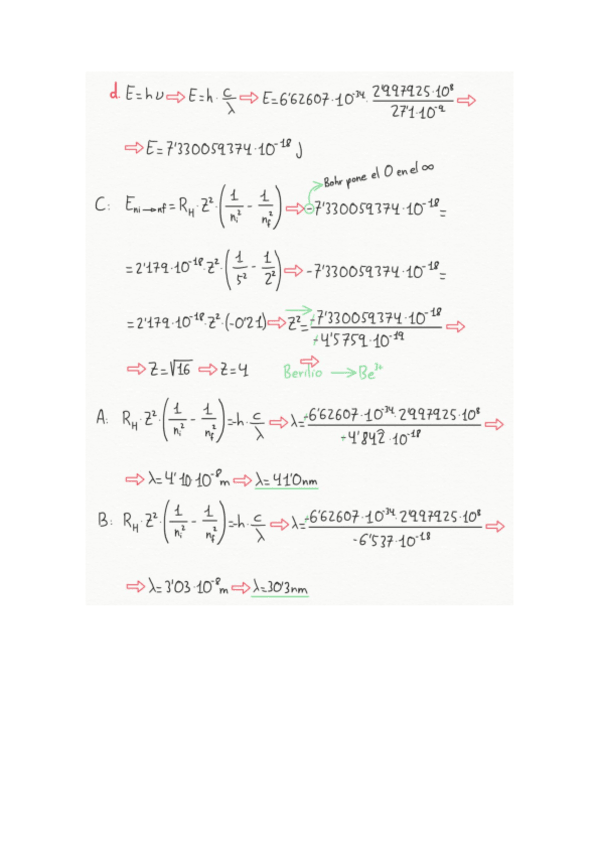 d. E=hν ⇨ E=h·c/λ ⇨ E=6'62607·10⁻³⁴·2'997925·10⁸/27'1·10⁻⁹ ⇨
⇨ E=7'330059374·10⁻¹⁸ J
Bohr pone el 0 en el ∞
C: E ni→nf = R_H·Z²·(1/nᵢ² - 1/n_f²) ⇨ -7'330059374·10⁻¹⁸=
=2'179·10⁻¹⁸·Z²·(1/5² - 1/2²) ⇨ -7'330059374·10⁻¹⁸=
=2'179·10⁻¹⁸·Z²·(-0'21) ⇨ Z²=+7'330059374·10⁻¹⁸/+4'5759·10⁻¹⁹ ⇨
⇨ Z=√16 ⇨ Z=4 ⇨ Berilio → Be³⁺
A: R_H·Z²·(1/nᵢ² - 1/n_f²)=-h·c/λ ⇨ λ=+6'62607·10⁻³⁴·2'997925·10⁸/+4'842̂·10⁻¹⁸ ⇨
⇨ λ=4'10·10⁻⁸m ⇨ λ=41'0nm
B: R_H·Z²·(1/nᵢ² - 1/n_f²)=-h·c/λ ⇨ λ=-6'62607·10⁻³⁴·2'997925·10⁸/-6'537·10⁻¹⁸ ⇨
⇨ λ=3'03·10⁻⁸m ⇨ λ=30'3nm